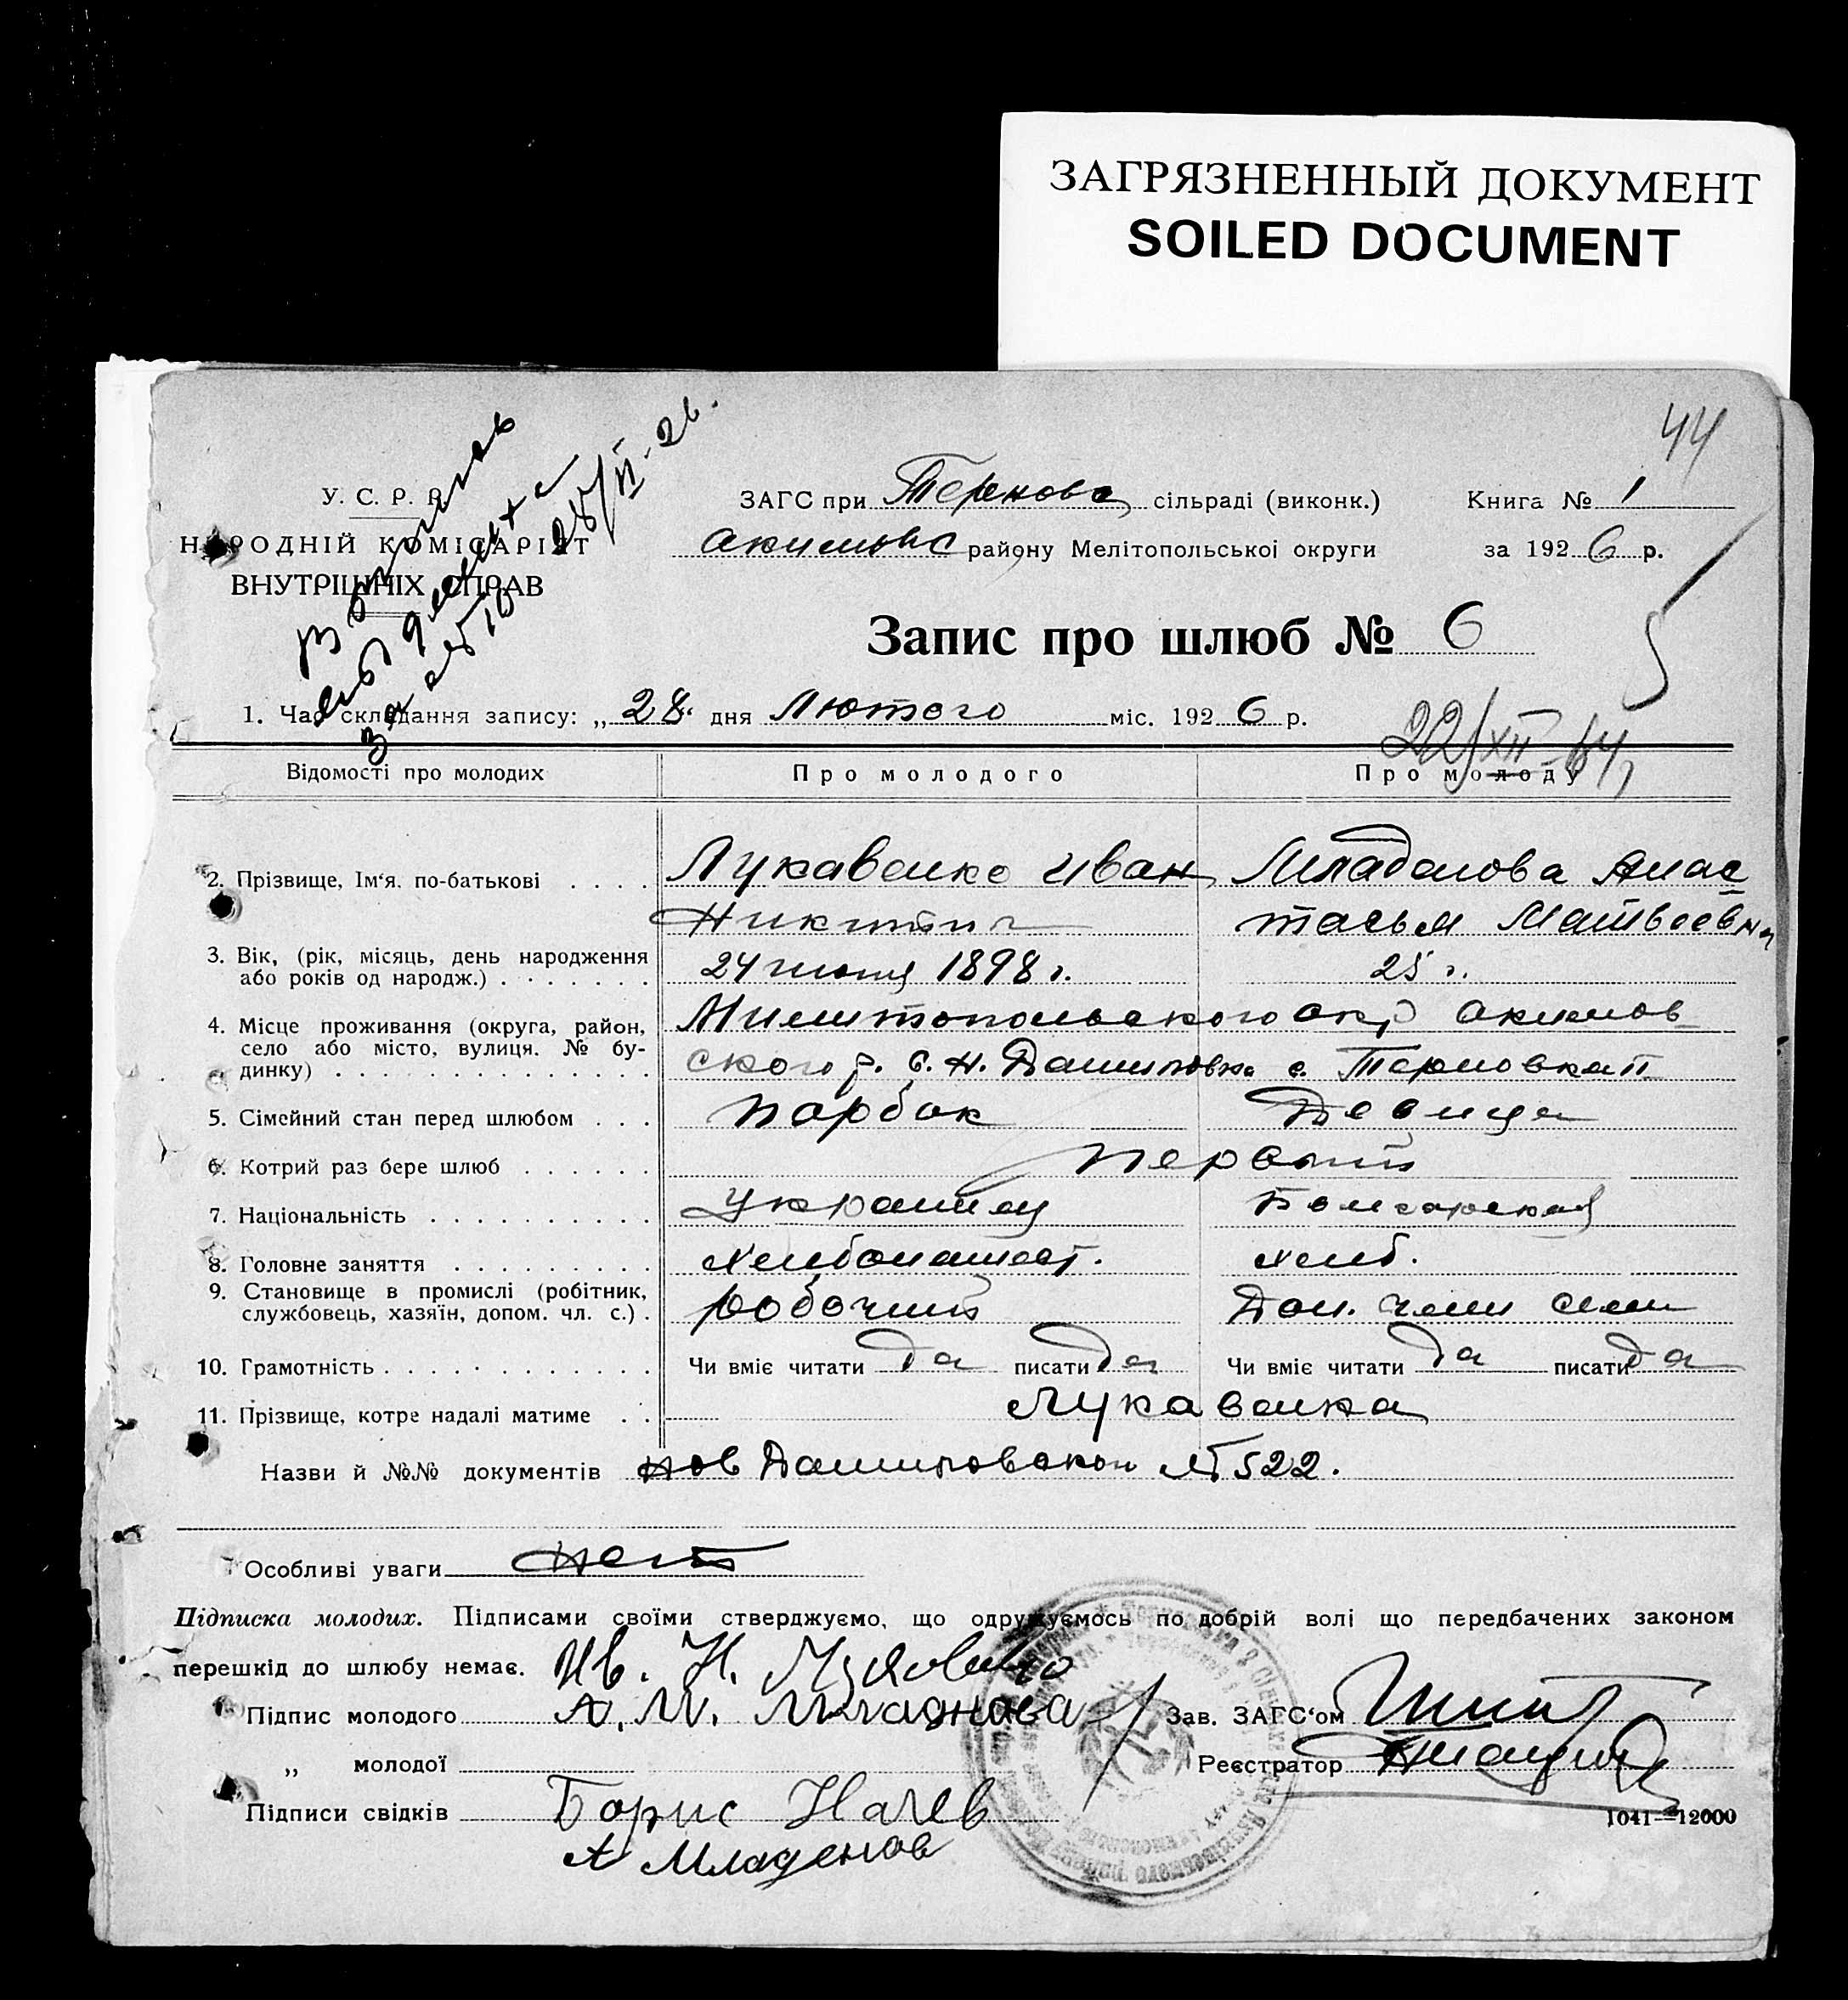 ЗАГРЯЗНЕННЫЙ ДОКУМЕНТ
SOILED DOCUMENT
44
У. С. Р. Р.
НАРОДНІЙ КОМІСАРІЯТ
ВНУТРІШНІХ СПРАВ
28/II-26.
ЗАГС при Тернова сільраді (виконк.) Книга № 1
Акимовс району Мелітопольської округи за 1926 р.
Запис про шлюб № 6
1. Час складання запису: „28. дня Лютого міс. 1926 р.
22/XII-64
Відомості про молодих Про молодого Про молоду
2. Прізвище, Ім'я, по-батькові Лукавенко Иван Младенова Анас
Никитич тасья Матвеевна
3. Вік, (рік, місяць, день народження
або років од народж.) 24 июня 1898 г. 25 г.
4. Місце проживання (округа, район, Милитопольского окр Акимов
село або місто, вулиця. № бу-
динку) ского р. с. Н. Даниловка с. Терновка
5. Сімейний стан перед шлюбом Парбок Девица
6. Котрий раз бере шлюб первый
7. Національність Украинец Болгарская
8. Головне заняття хлебопашест. хлеб.
9. Становище в промислі (робітник,
службовець, хазяїн, допом. чл. с.) робочий Доп. член семи
10. Грамотність Чи вміє читати да писати да Чи вміє читати да писати да
11. Прізвище, котре надалі матиме Лукавенка
Назви й №№ документів Нов Даниловской № 522.
Особливі уваги нет
Підписка молодих. Підписами своїми стверджуємо, що одружуємось по добрій волі що передбачених законом
перешкід до шлюбу немає. Ив. Н.
Підпис молодого А. М. Младнова Зав. ЗАГС'ом
„ молодої Реєстратор
Підписи свідків Борис Начев
1041—12000
А Младенов